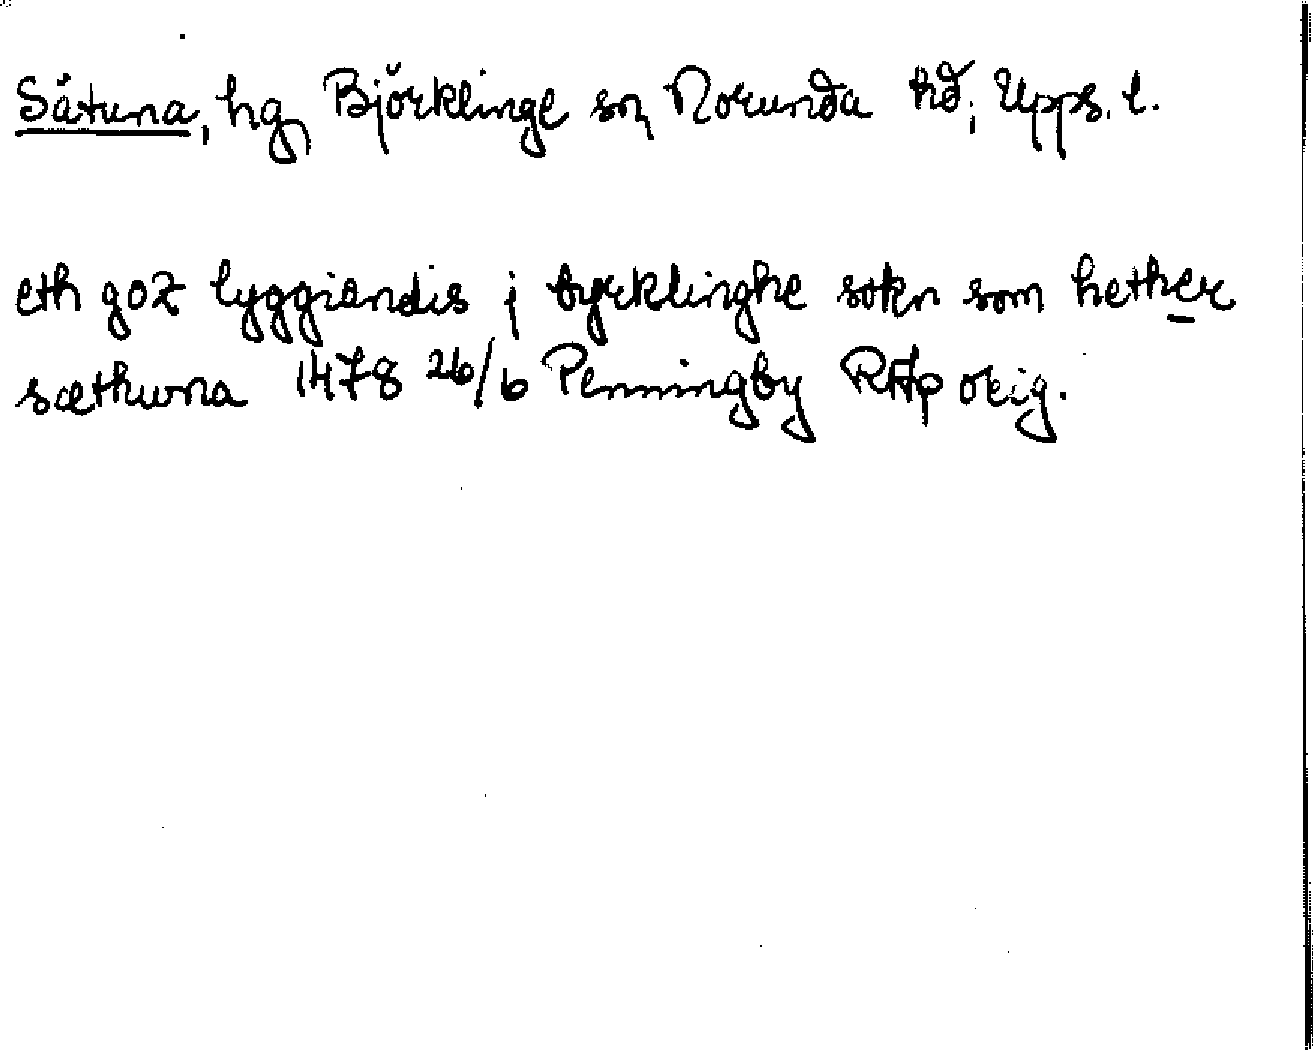 Sätuna, hg, Björklinge sn, Norunda hd, Upps. l.
eth goz lyggiandis j byrklinghe sokn som hether
sæthuna 1478 26/6 Penningby RAp orig.